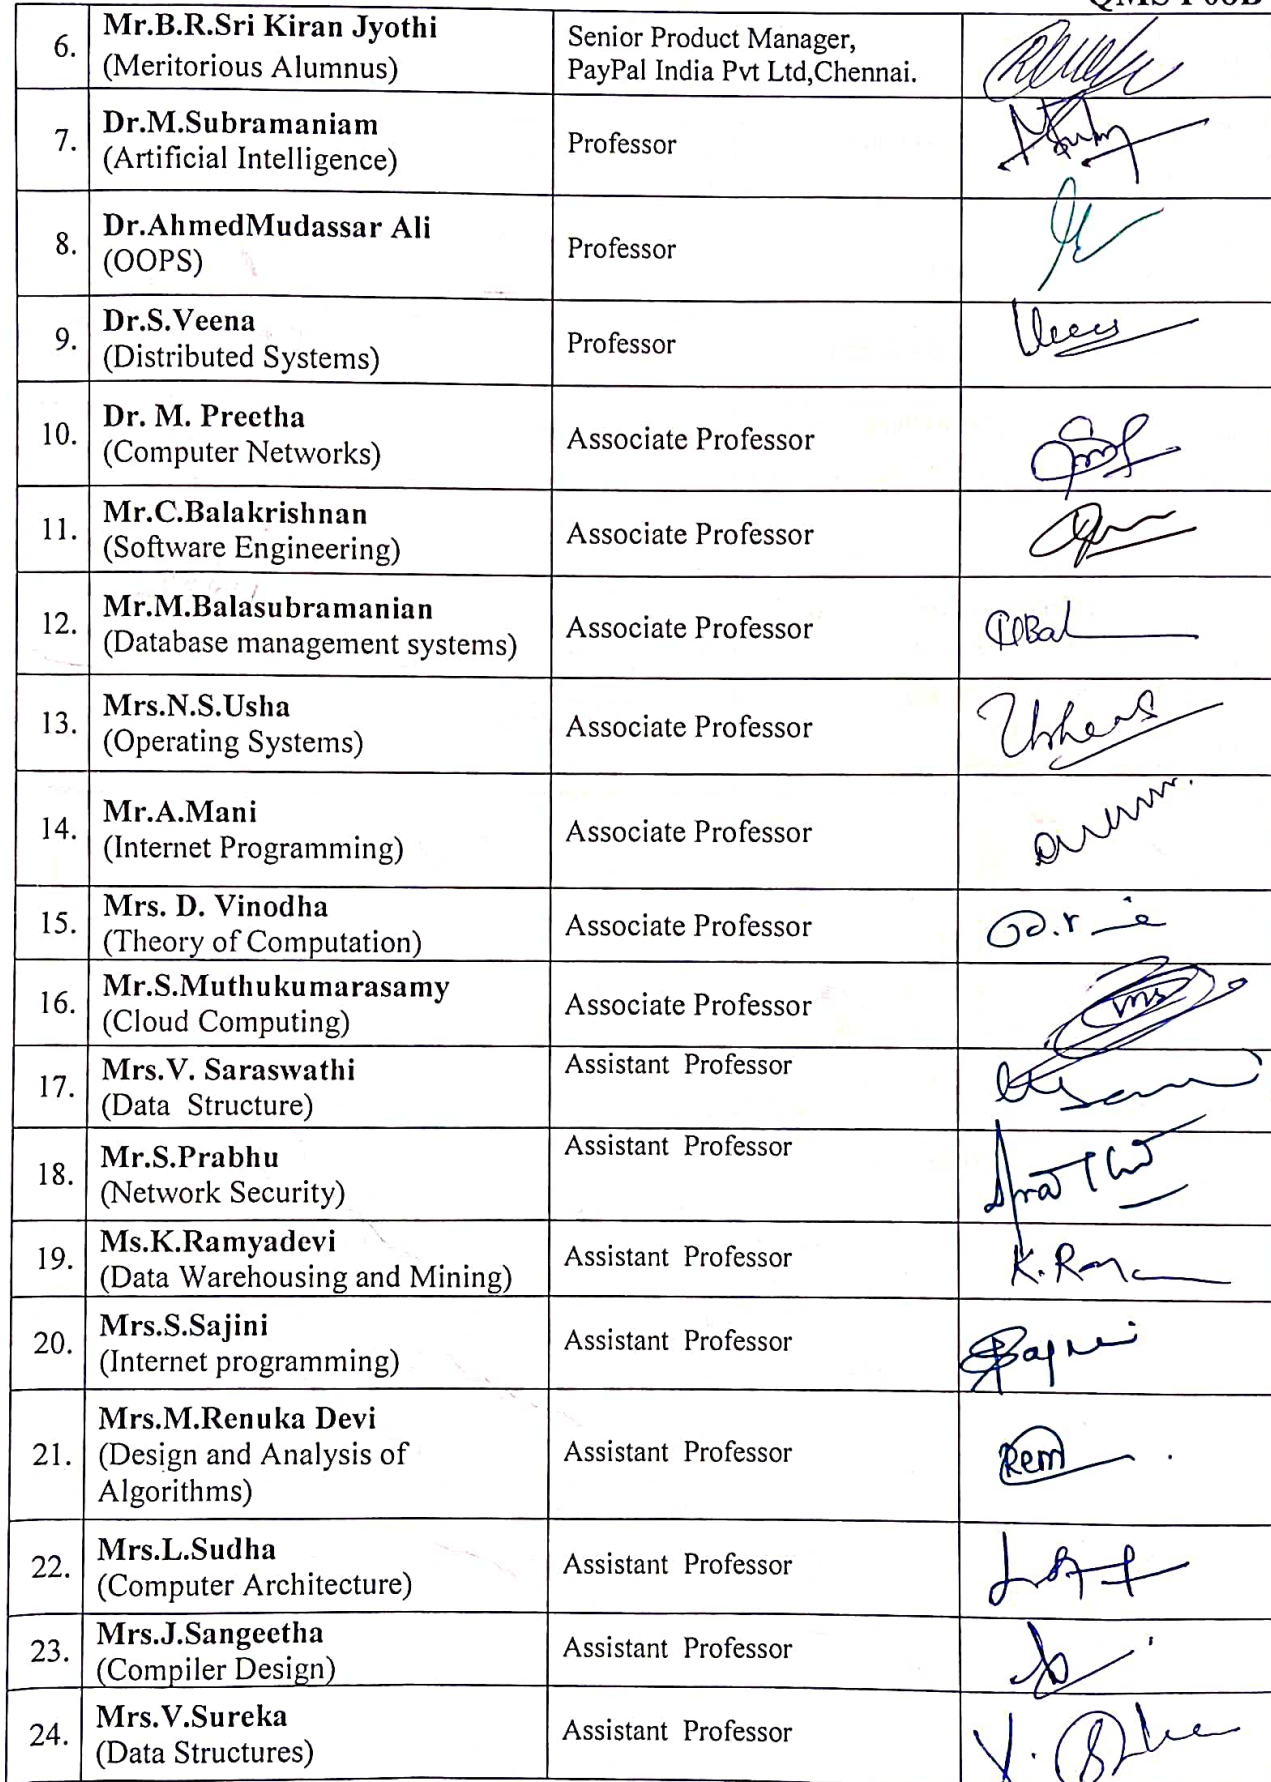 6.
Mr.B.R.Sri Kiran Jyothi
(Meritorious Alumnus)
Senior Product Manager,
PayPal India Pvt Ltd,Chennai.
7.
Dr.M.Subramaniam
(Artificial Intelligence)
Professor
8.
Dr.AhmedMudassar Ali
(OOPS)
Professor
9.
Dr.S.Veena
(Distributed Systems)
Professor
10.
Dr. M. Preetha
(Computer Networks)
Associate Professor
11.
Mr.C.Balakrishnan
(Software Engineering)
Associate Professor
12.
Mr.M.Balasubramanian
(Database management systems)
Associate Professor
13.
Mrs.N.S.Usha
(Operating Systems)
Associate Professor
14.
Mr.A.Mani
(Internet Programming)
Associate Professor
15.
Mrs. D. Vinodha
(Theory of Computation)
Associate Professor
16.
Mr.S.Muthukumarasamy
(Cloud Computing)
Associate Professor
17.
Mrs.V. Saraswathi
(Data Structure)
Assistant Professor
18.
Mr.S.Prabhu
(Network Security)
Assistant Professor
19.
Ms.K.Ramyadevi
(Data Warehousing and Mining)
Assistant Professor
20.
Mrs.S.Sajini
(Internet programming)
Assistant Professor
21.
Mrs.M.Renuka Devi
(Design and Analysis of
Algorithms)
Assistant Professor
Rem
22.
Mrs.L.Sudha
(Computer Architecture)
Assistant Professor
23.
Mrs.J.Sangeetha
(Compiler Design)
Assistant Professor
24.
Mrs.V.Sureka
(Data Structures)
Assistant Professor